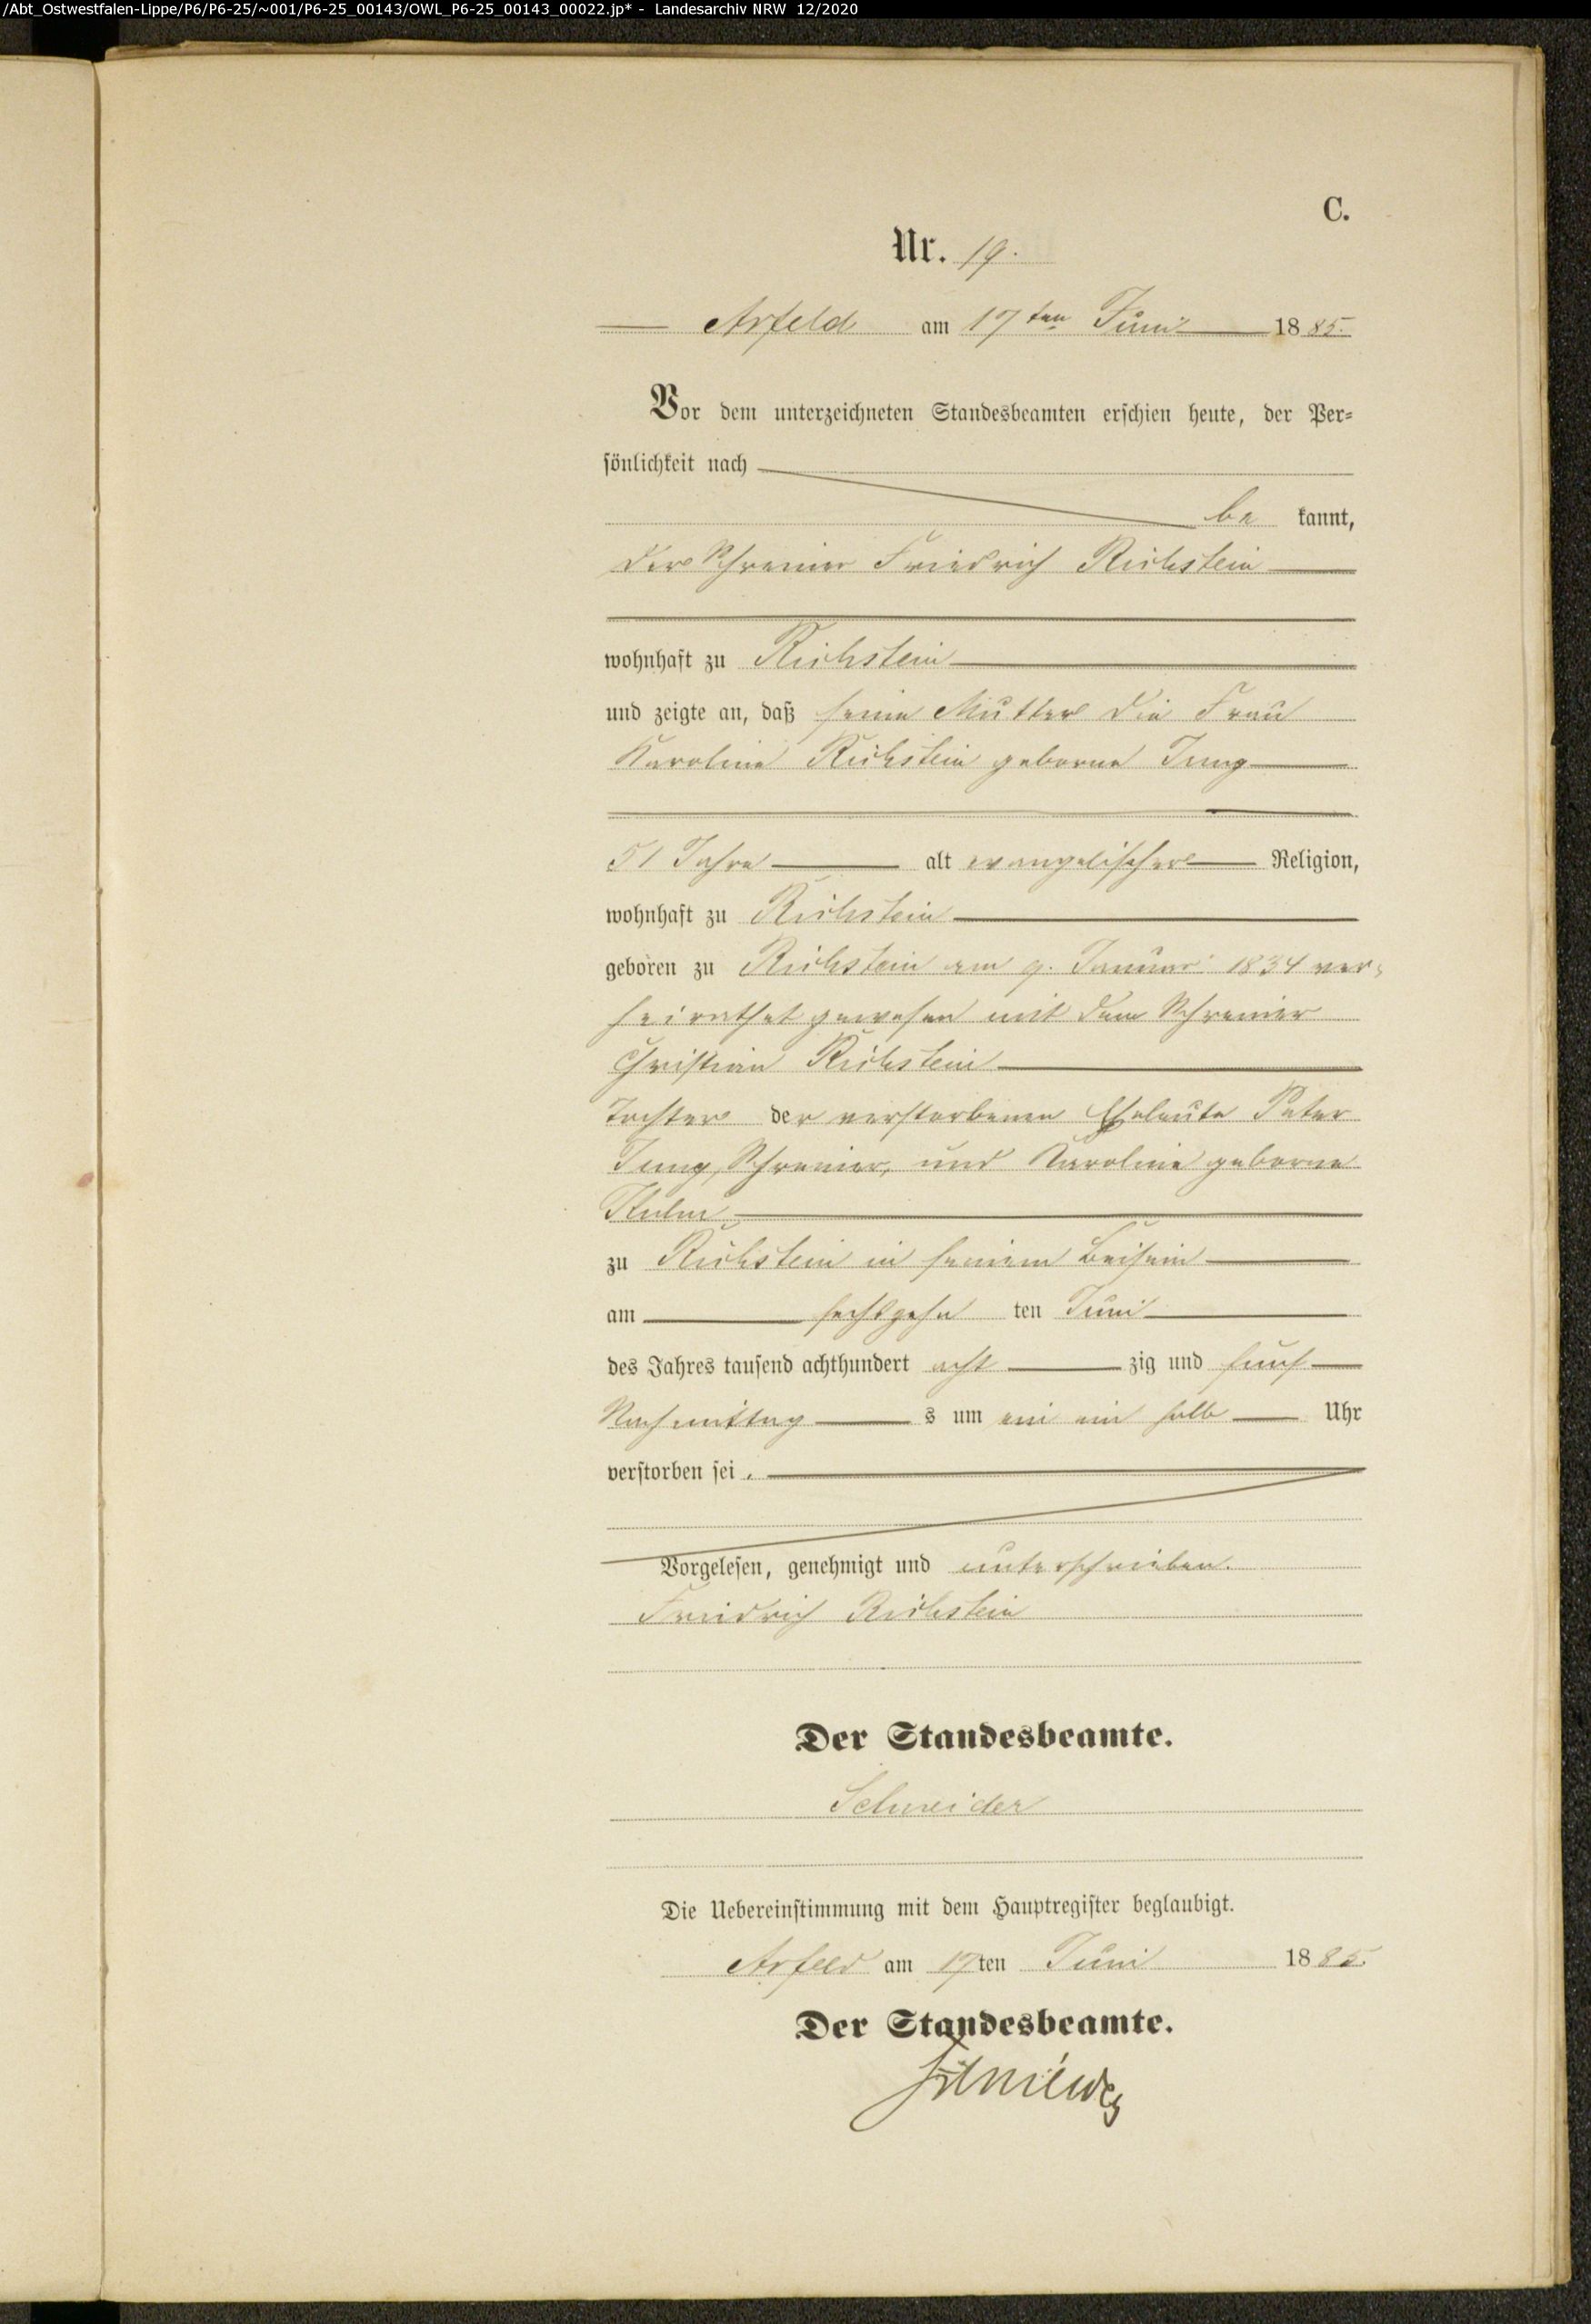 /Abt_Ostwestfalen-Lippe/P6/P6-25/~001/P6-25_00143/OWL_P6-25_00143_00022.jp* - Landesarchiv NRW 12/2020
C.
Nr. 19.
Arfeld am 17ten Juni 1885.
Vor dem unterzeichneten Standesbeamten erschien heute, der Per-
sönlichkeit nach
be kannt,
der Schreiner Friedrich Richstein
wohnhaft zu Richstein
und zeigte an, daß seine Mutter die Frau
Karoline Richstein geborne Jung
51 Jahre alt evangelischer Religion,
wohnhaft zu Richstein
geboren zu Richstein am 9. Januar 1834 ver-
heirathet gewesen mit dem Schreiner
Christian Richstein
Tochter der verstorbenen Eheleute Peter
Jung, Schreiner, und Karoline geborne
zu Richstein in seinem Beisein
am sechszehn ten Juni
des Jahres tausend achthundert acht zig und fünf
Nachmittag s um ein halb Uhr
verstorben sei.
Vorgelesen, genehmigt und unterschrieben.
Friedrich Richstein
Der Standesbeamte.
Schneider
Die Uebereinstimmung mit dem Hauptregister beglaubigt.
Arfeld am 17ten Juni 1885.
Der Standesbeamte.
Schneider